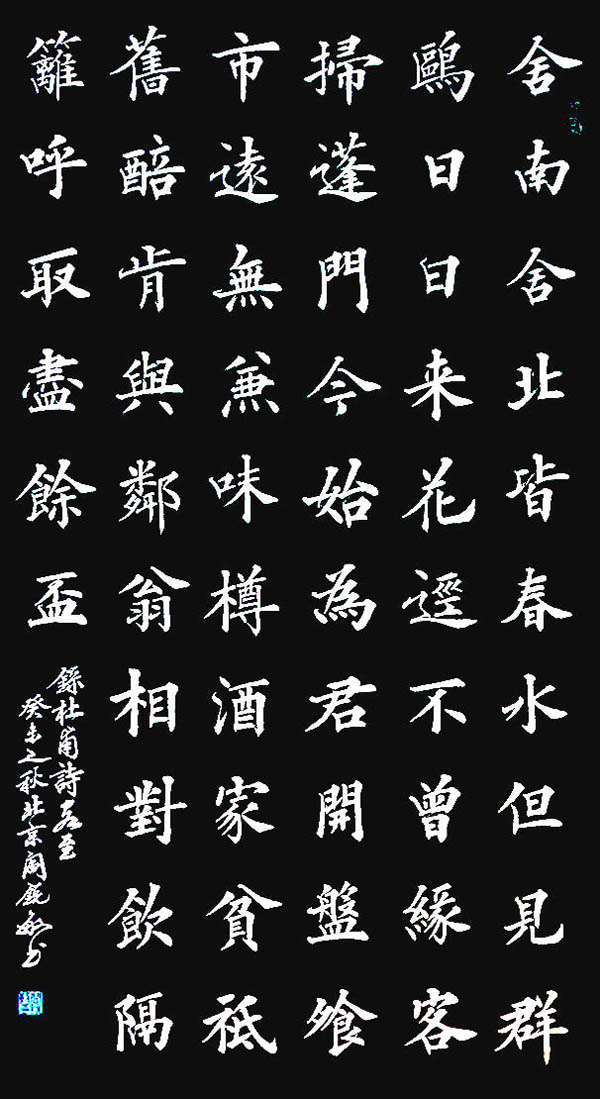 舍南舍北皆春水但見群
鷗日日来花逕不曾緣客
掃蓬門今始為君開盤飧
市遠無兼味樽酒家貧祗
舊醅肯與鄰翁相對飲隔
籬呼取盡餘盃
錄杜甫詩客至
癸未之秋北京閻銳敏书